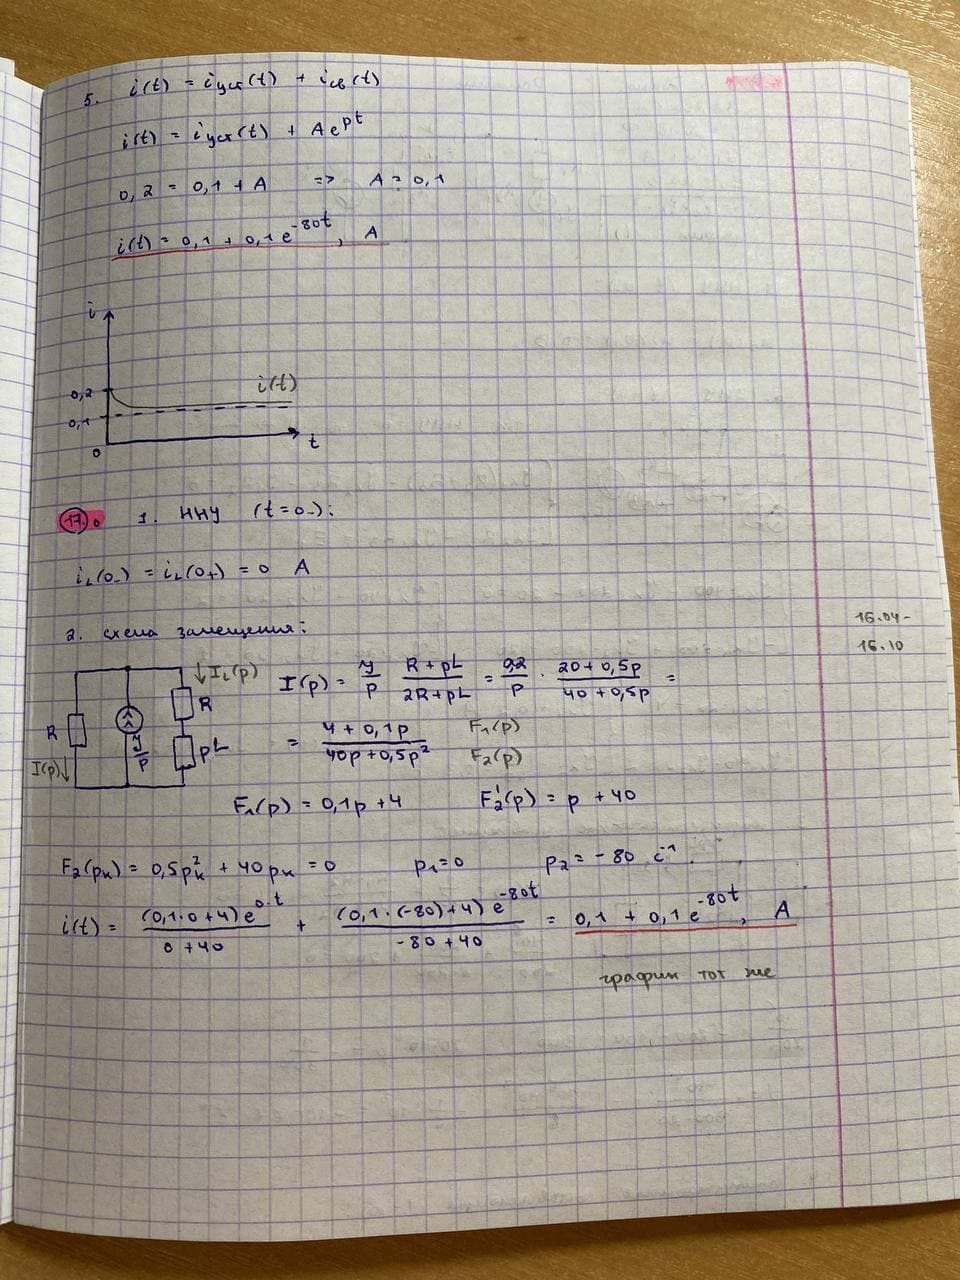 5. i(t) = iуст(t) + iсв(t)
i(t) = iуст(t) + A e^{pt}
0,2 = 0,1 + A => A = 0,1
i(t) = 0,1 + 0,1 e^{-80t}, A
i
0,2
i(t)
0,1
0
t
17. 1. ННУ (t=0-):
iL(0-) = iL(0+) = 0 A
16.04-
16.10
2. схема замещения:
IL(p)
R
R
I(p)
J/p
pL
I(p) = J/p · (R+pL)/(2R+pL) = 0,2/p · (20+0,5p)/(40+0,5p) =
= (4+0,1p)/(40p+0,5p²) F1(p) F2(p)
F1(p) = 0,1p+4 F2'(p) = p + 40
F2(pк) = 0,5pк² + 40pк = 0 p1=0 p2 = -80 с⁻¹
i(t) = (0,1·0+4)e^{0·t}/(0+40) + (0,1·(-80)+4)e^{-80t}/(-80+40) = 0,1 + 0,1 e^{-80t}, A
график тот же